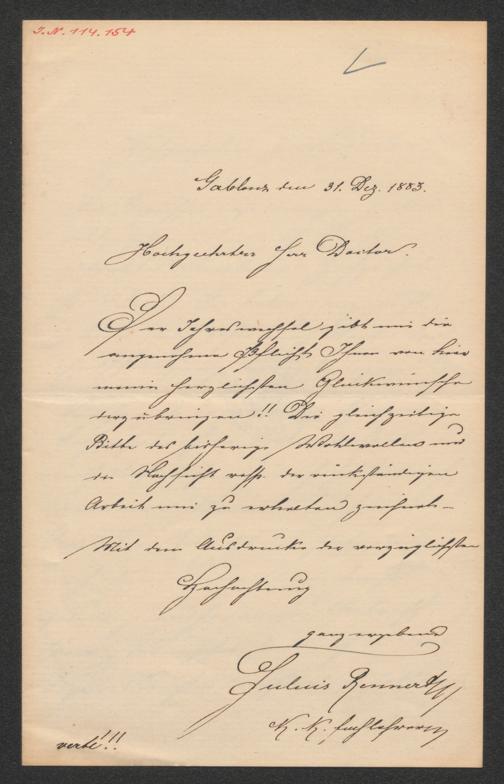 I.N. 114.154
Gablonz den 31. Dez. 1883.
Hochgeehrter Herr Doctor.
Der Jahreswechsel gibt mir die
angenehme Pflicht Ihnen von hier
meine herzlichsten Glückwünsche
darzubringen!! Die gleichzeitige
Bitte das bisherige Wohlwollen und
die Nachsicht resp. der rückständigen
Arbeit mir zu erhalten
Mit dem Ausdrucke der vorzüglichsten
Hochachtung
ganz ergebenst
Julius Rennert
K. K. Fachlehrer
verte!!!